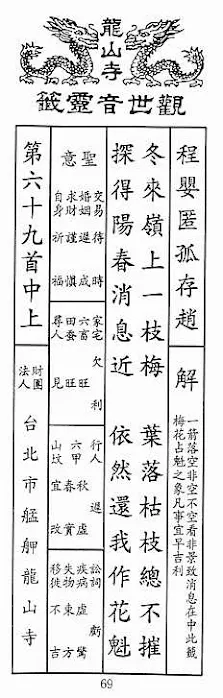 龍山寺
觀世音靈籤
程嬰匿孤存趙
解
一箭落空非空不空看非景致消息在中此籤
梅花占魁之象凡事宜早吉利
冬來嶺上一枝梅 葉落枯枝總不摧
探得陽春消息近 依然還我作花魁
聖意
交易 待時
婚姻 遲成
求財 謹慎
自身 祈福
家宅 欠利
六畜 旺
田蚕 旺
尋人 見
行人 遲
六甲 春虛秋實
山坟 宜改
訟詞 虧
疾病 虛驚
失物 東方
移徙 不吉
第六十九首中上
財團法人 台北市艋舺龍山寺
69